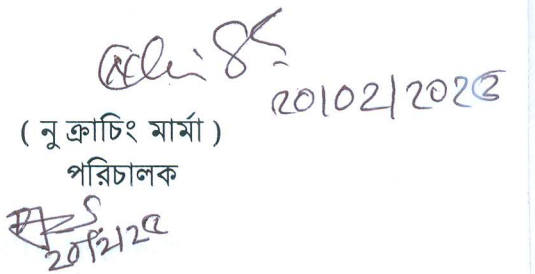 ২০/০২/২০২৫
( নু ক্রাচিং মার্মা )
পরিচালক
২০/২/২৫